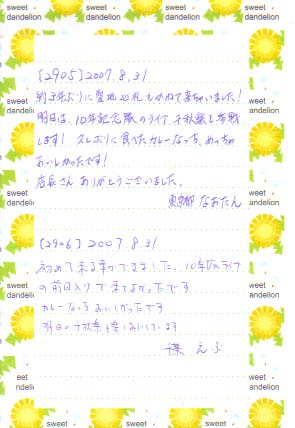 sweet dandelion sweet dandelion sweet dandelion sweet dandelion
[2905] 2007.8.31
約3年ぶりに聖地巡礼もかねて来ちゃいました!
明日は、10年記念版のライブ、千秋楽も参戦
します! 久しぶりに食べたカレーなっち、めっちゃ
おいしかったです!
店長さん ありがとうございました。
東京都 なおたん
[2906] 2007.8.31
初めて来る事ができました。10年版ライブ
の前日入りで来てよかったです
カレーなっちおいしかったです
明日の千秋楽も楽しみにしています
sweet dandelion sweet dandelion